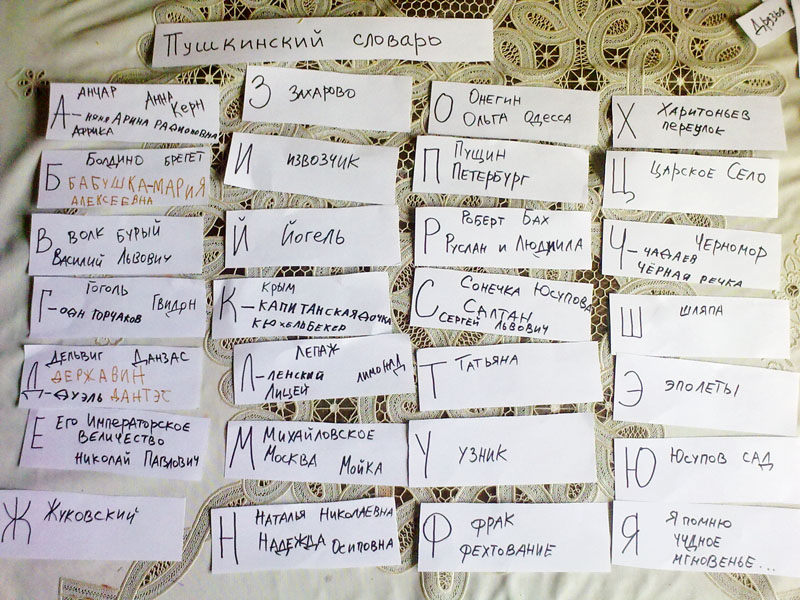 Пушкинский словарь
Друзья
А
АНЧАР
АННА КЕРН
– няня Арина Радионовна
Африка
Б
Болдино брегет
БАБУШКА-МАРИЯ
АЛЕКСЕЕВНА
В
ВОЛК БУРЫЙ
Василий Львович
Г
Гоголь Гвидон
– Горчаков
Д
Дельвиг Данзас
ДЕРЖАВИН
– дуэль ДАНТЭС
Е
Его Императорское
величество
Николай Павлович
Ж
Жуковский
З
Захарово
И
извозчик
Й
Йогель
К
Крым
– КАПИТАНСКАЯ дочка
КЮХЕЛЬБЕКЕР
Л
ЛЕПАЖ
– ЛЕНСКИЙ ЛИМОНАД
Лицей
М
Михайловское
Москва Мойка
Н
Наталья Николаевна
Надежда Осиповна
О
Онегин
Ольга Одесса
П
Пущин
Петербург
Р
Роберт Бах
Руслан и Людмила
С
Сонечка Юсупова
Салтан
Сергей Львович
Т
Татьяна
У
узник
Ф
фрак
фехтование
Х
Харитоньев
переулок
Ц
Царское Село
Ч
Черномор
– ЧААДАЕВ
ЧЁРНАЯ РЕЧКА
Ш
шляпа
Э
эполеты
Ю
Юсупов сад
Я
Я помню
чудное
мгновенье...